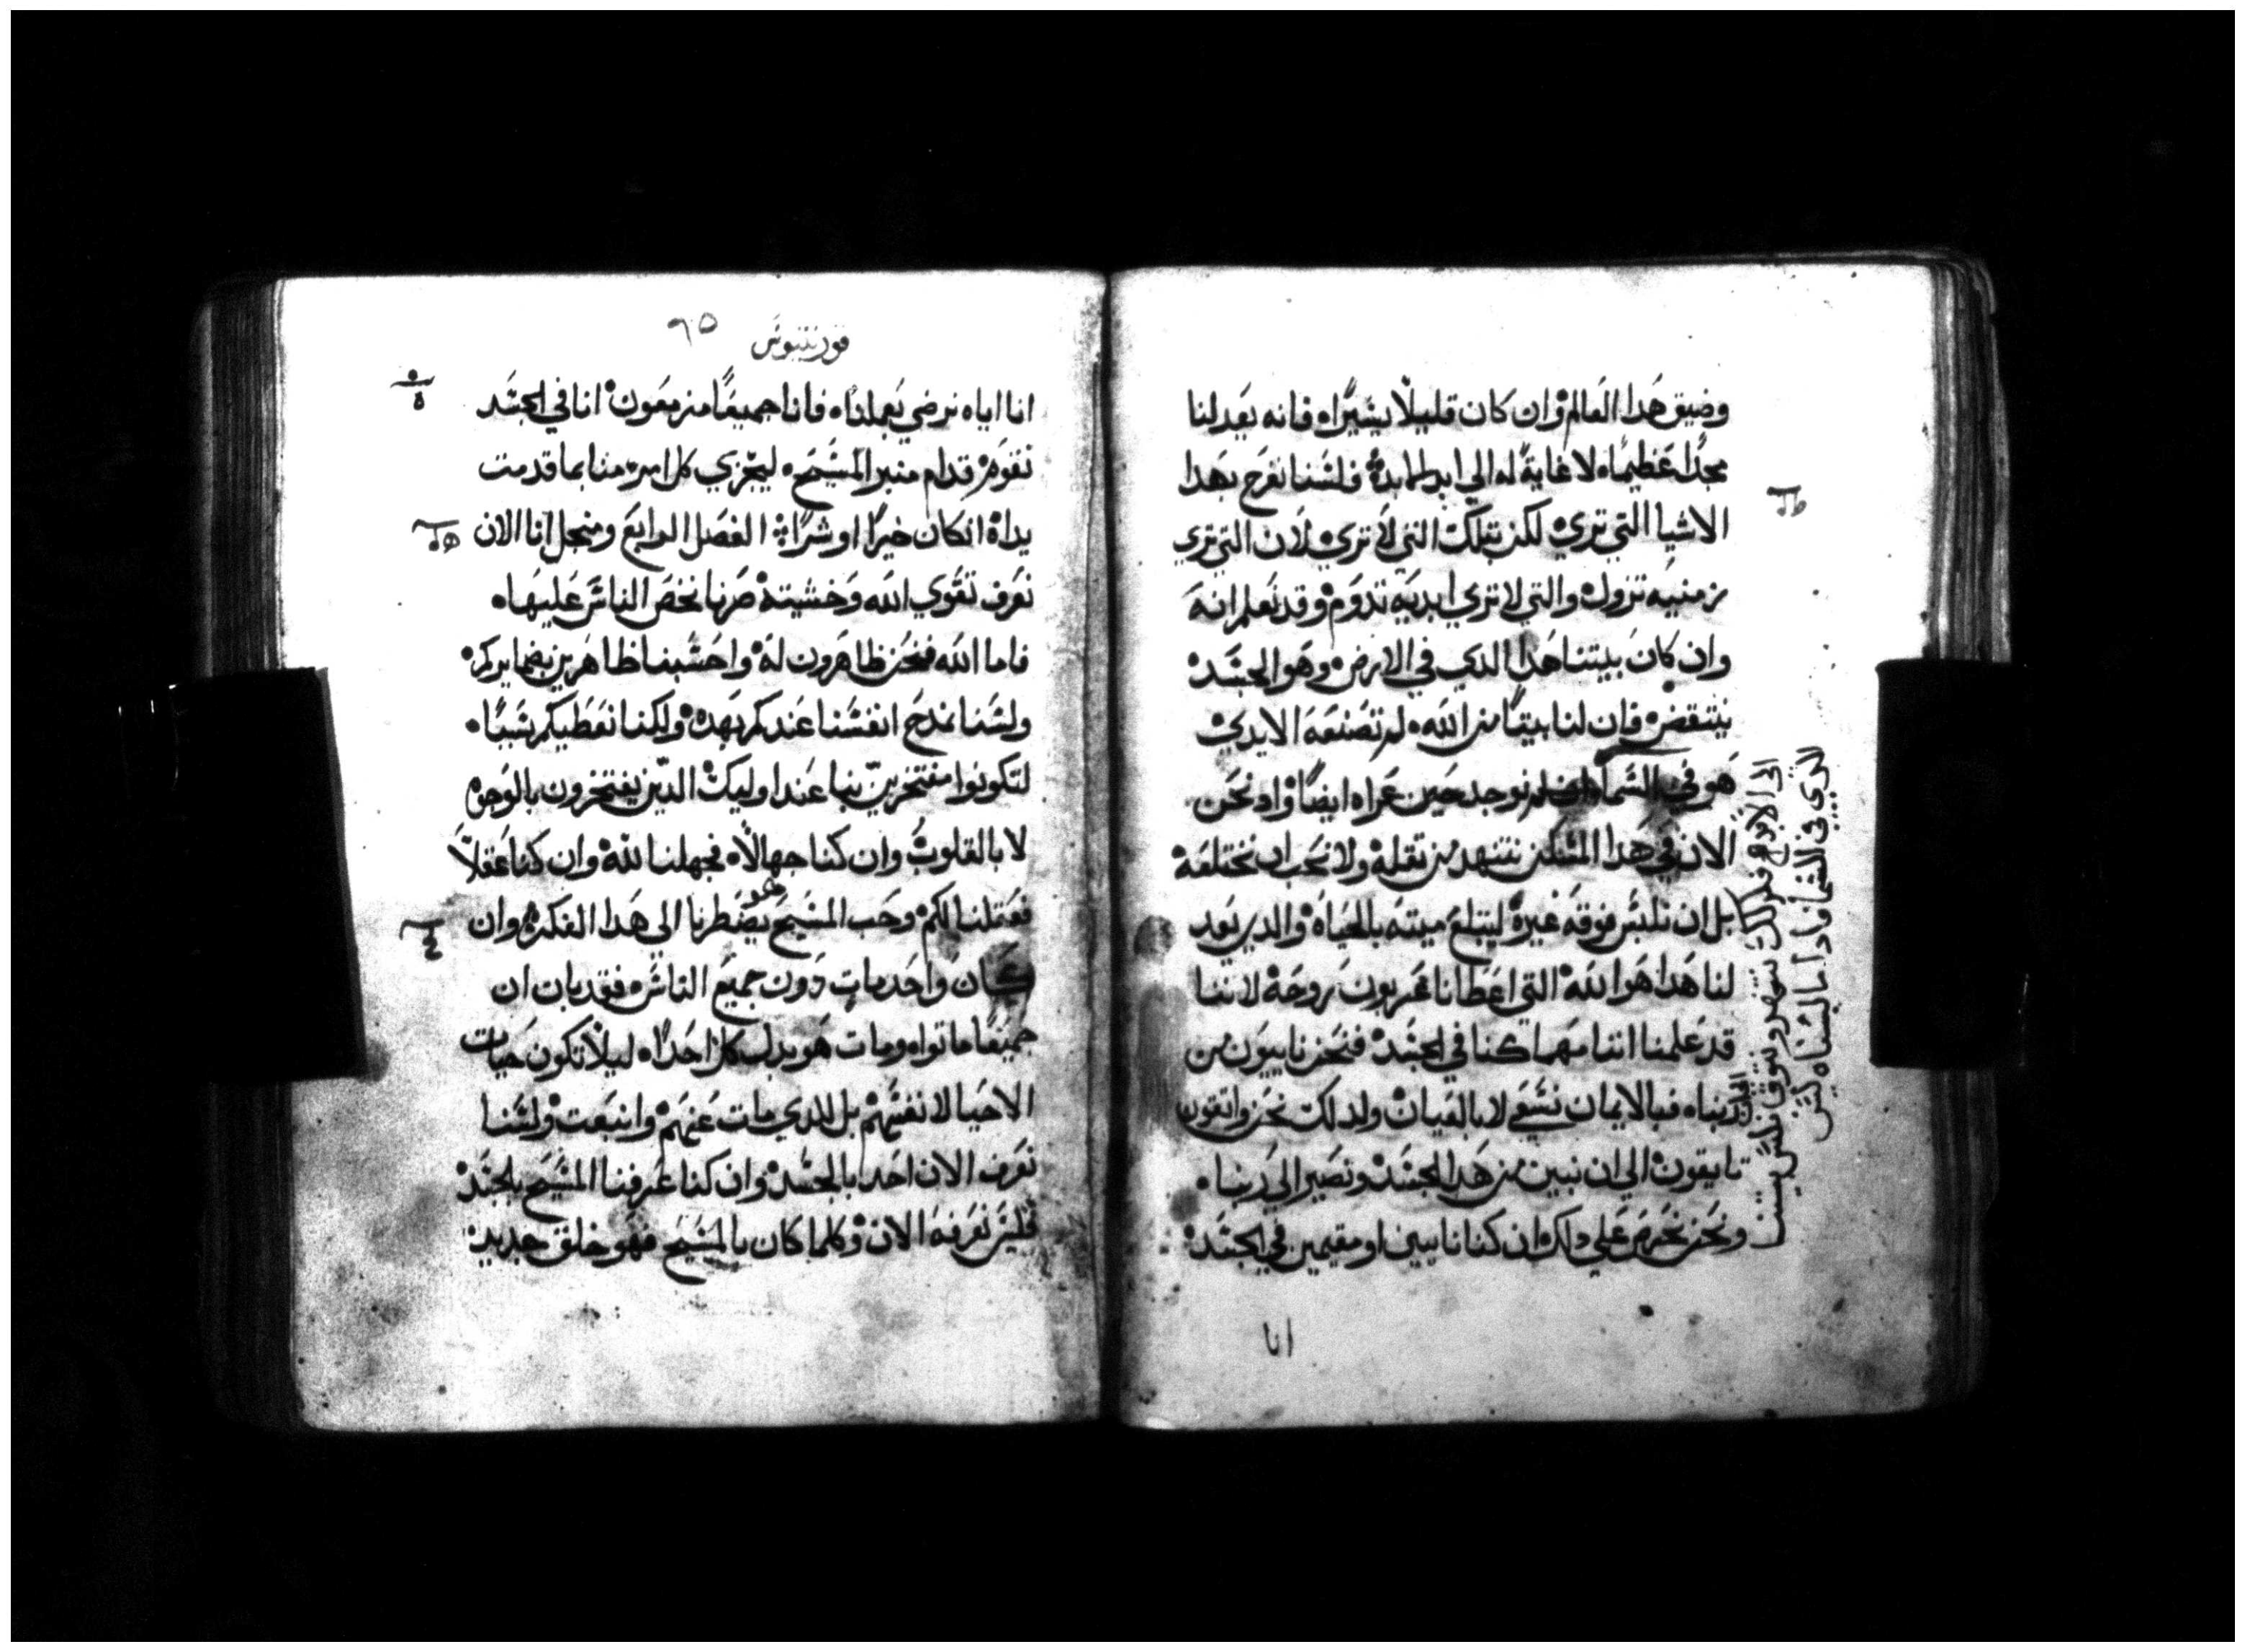 وضيق هدا العالم وان كان قليلاً يسيراً فانه يعد لنا
مجداً عظيماً لا غاية له الي ابد الابد ولسنا نفرح بهدا
الاشيا التي تري لكن بتلك التي لا تري لان التي تري
زمنيه تزول والتي لا تري ابديه تدوم وقد نعلم انه
وان كان بيتنا هدا الدي في الارض وهو الجسد
ينتقض فان لنا بيتاً من الله لم تصنعه الايدي
هو في السما نوجد حين عراه ايضاً واد نحن
الان في هدا المسكن نتنهد من تقله ولا نحب ان نختلعه
بل ان نلبس فوقه غيره ليتبلع ميته بالحياه والدي يعد
لنا هدا هو الله التي اعطانا عربون روحه لاننا
قد علمنا اننا مهما كنا في الجسد فنحن ناييون من
ربنا فبالايمان نسعي لا بالعيان ولدلك نحن واتقون
تايقون الي ان نبين من هدا الجسد ونصير الي ربنا
ونحن نحرص علي دلك ان كنا ناييين او مقيمين في الجسد
انا
الى الابد
الذي في السما فادا ما لبسناه
قورنتيوس
٦٥
انا اياه نرضي بعملنا فانا جميعاً مزمعون انا في الجسد
نقوم قدام منبر المسيح ليجزي كل امرء منا بما قدمت
يداه انكان خيراً او شراً الفصل الرابع ومنجل انا الان
نعرف تقوي الله وخشيته صرنا نخص الناس عليها
فاما الله فنحن ظاهرون له واحسبنا ظاهرين بضمايركم
ولسنا نمدح انفسنا عندكم بهده ولكنا نعطيكم سبباً
لتكونوا مفتخرين بنا عند اوليك الدين يفتخرون بالوجوه
لا بالقلوب وان كنا جهالاً فجهلنا لله وان كنا عقلاً
فعقلنا لكم وحب المسيح يضطرنا الي هدا الفكره وان
كان واحد مات دون جميع الناس فقد بان ان
جميعاً ماتوا ومات هو بدل كل احداً ليلا تكون حيات
الاحيا لانفسهم بل للدي مات عنهم وانبعت ولسنا
نعرف الان احد بالجسد وان كنا عرفنا المسيح بالجسد
فليس نعرفه الان وكلما كان بالمسيح فهو خلق جديد